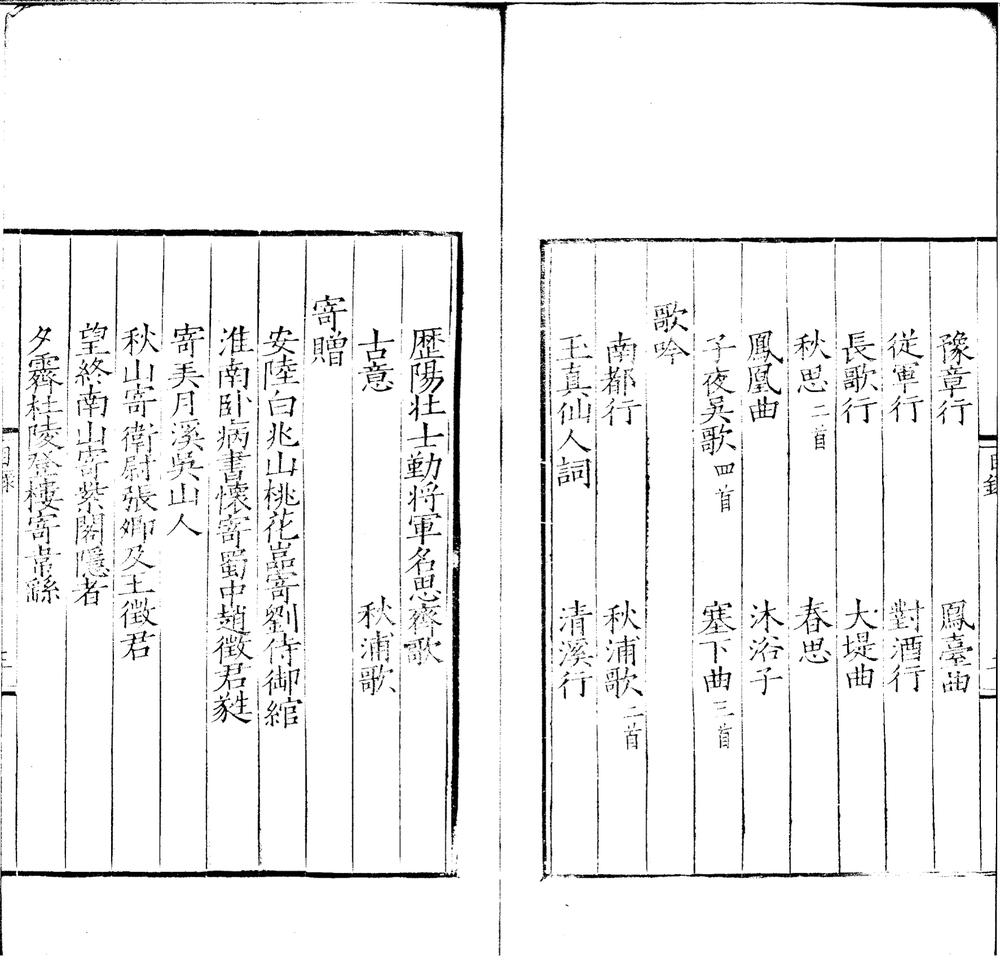 豫章行　鳳臺曲
從軍行　對酒行
長歌行　大堤曲
秋思二首　春思
鳳凰曲　沐浴子
子夜吳歌四首　塞下曲三首
歌吟
南都行　秋浦歌二首
玉真仙人詞　清溪行
歷陽壯士勤將軍名思齊歌
古意　秋浦歌
寄贈
安陸白兆山桃花巖寄劉侍御綰
淮南卧病書懷寄蜀中趙徵君蕤
寄弄月溪吳山人
秋山寄衛尉張卿及王徵君
望終南山寄紫閣隱者
夕霽杜陵登樓寄韋繇
目錄